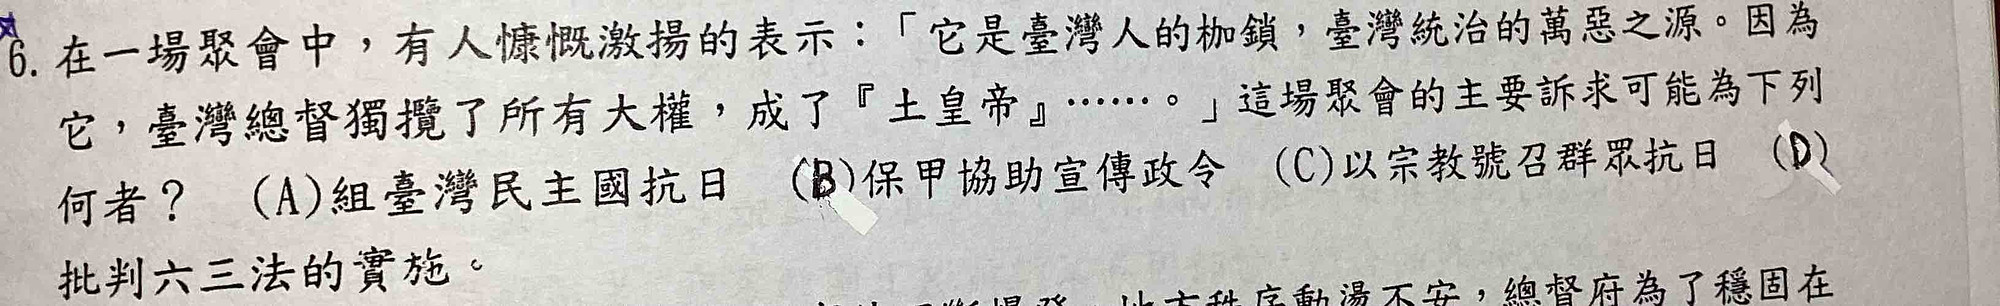 6. 在一場聚會中，有人慷慨激揚的表示：「它是臺灣人的枷鎖，臺灣統治的萬惡之源。因為
它，臺灣總督獨攬了所有大權，成了『土皇帝』……。」這場聚會的主要訴求可能為下列
何者？ (A)組臺灣民主國抗日 (B)保甲協助宣傳政令 (C)以宗教號召群眾抗日 (D)
批判六三法的實施。
地方秩序動盪不安，總督府為了穩固在